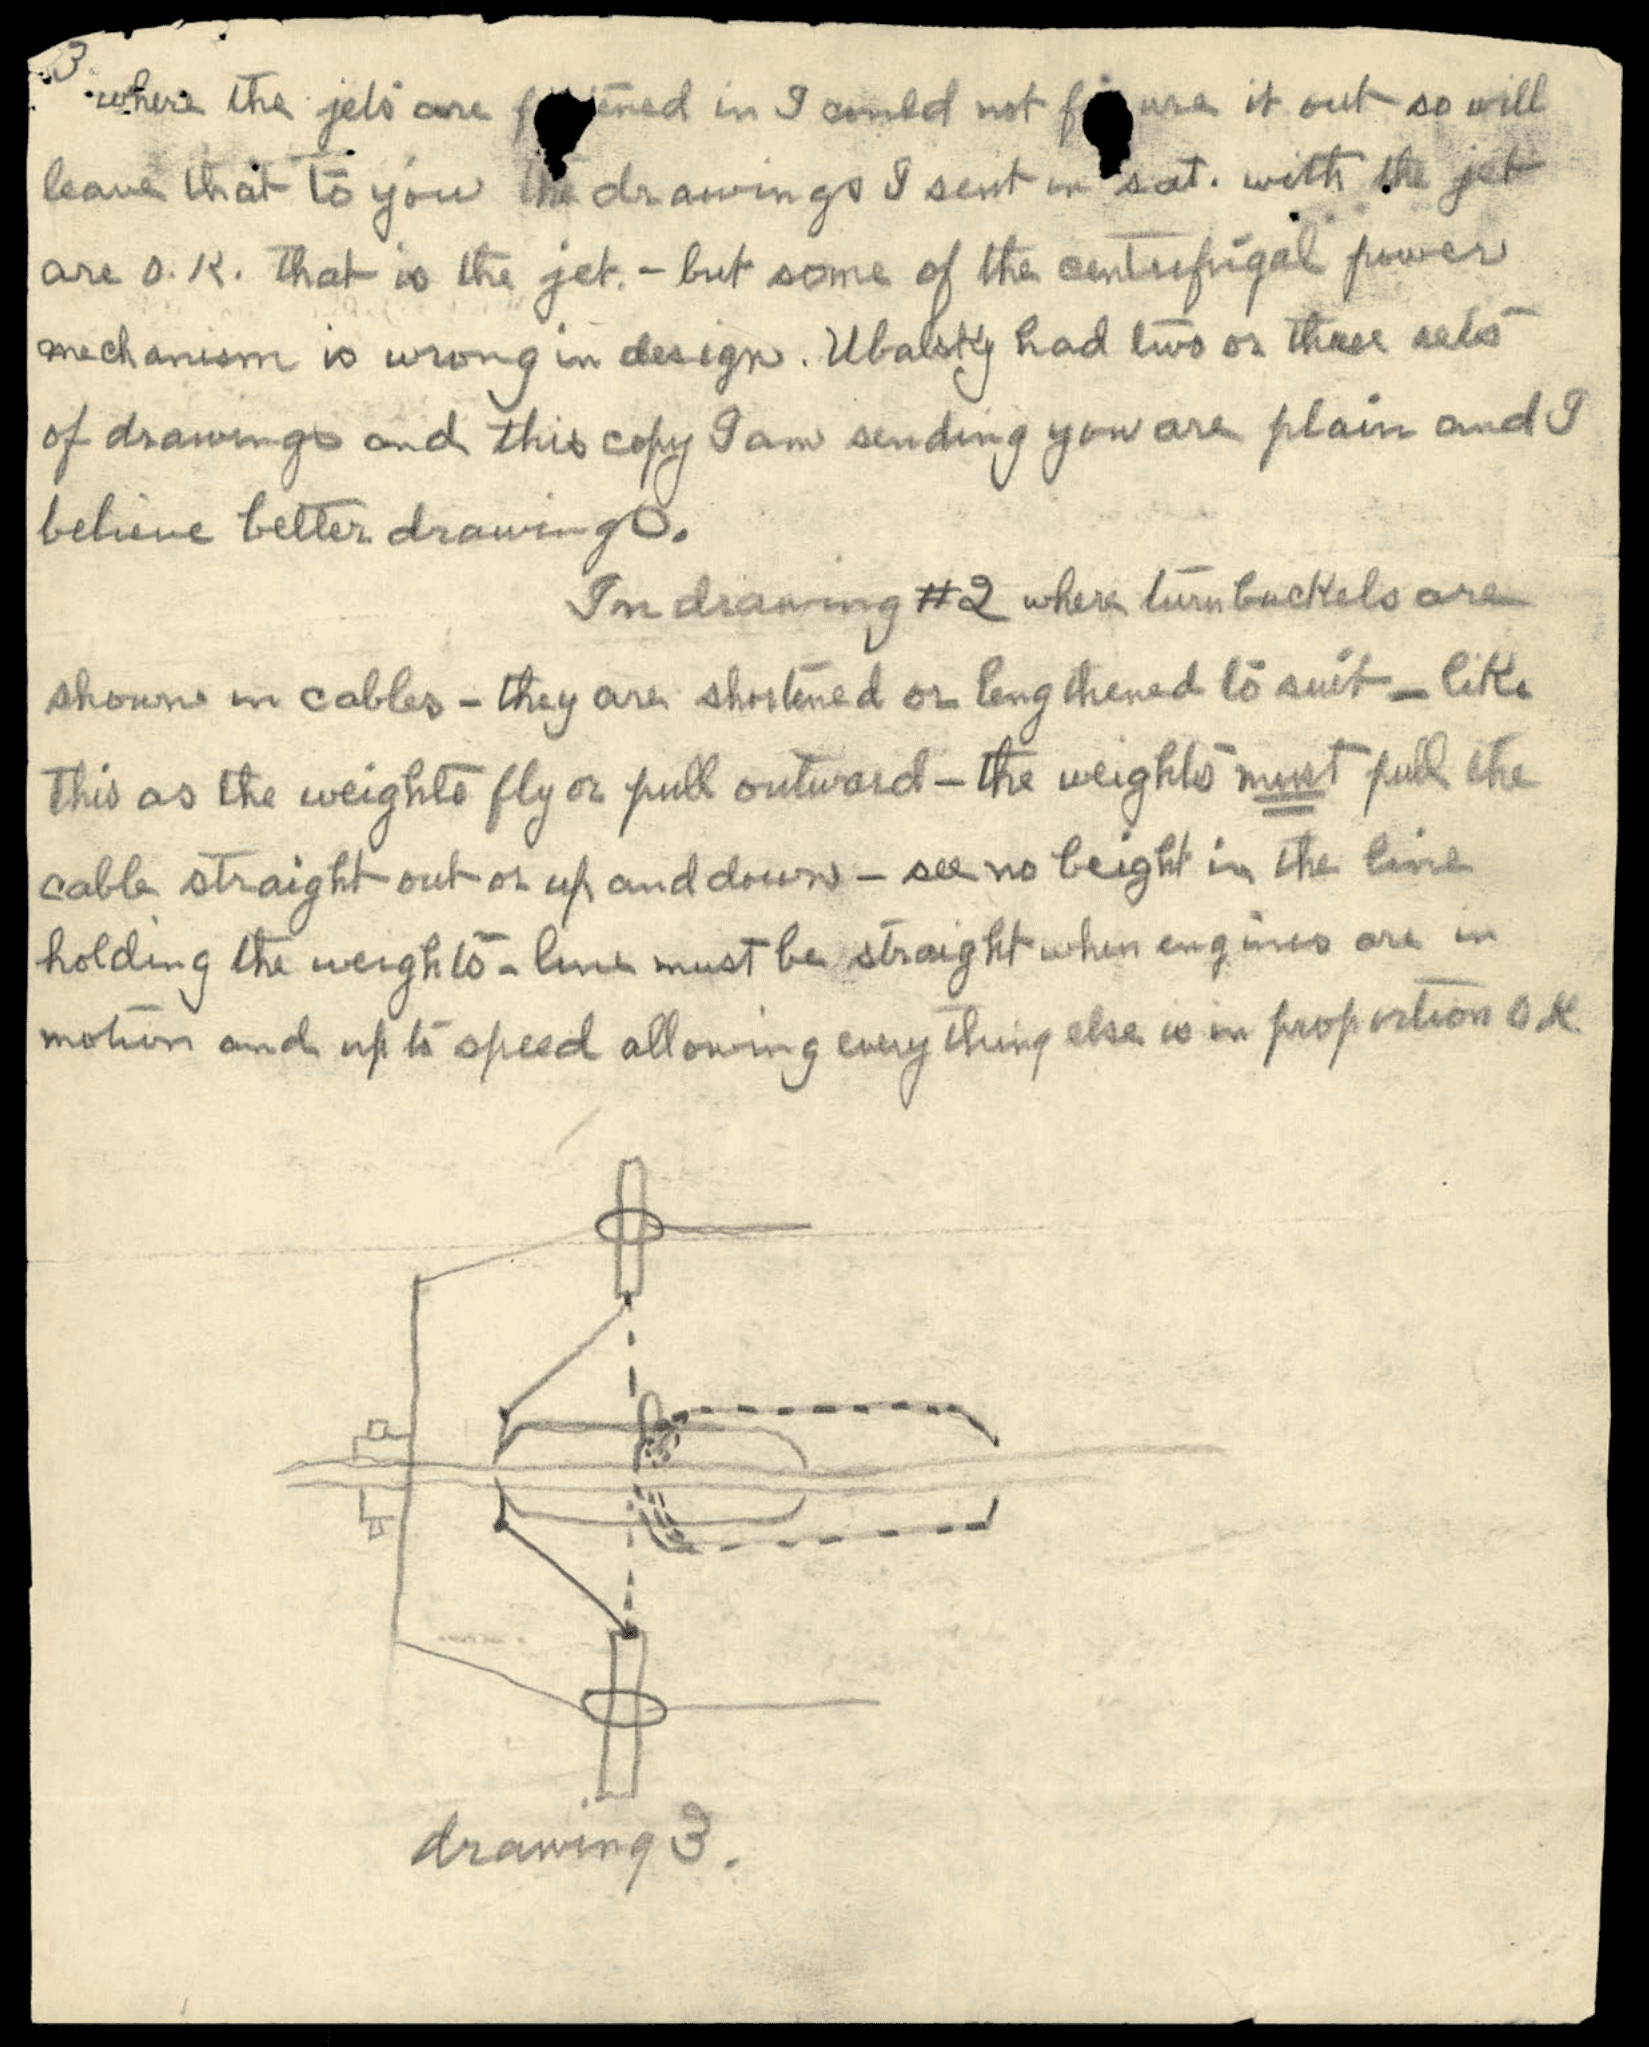 3.
where the jets are f tened in I could not f ure it out so will
leave that to you the drawings I sent in sat. with the jet
are O.K. that is the jet. - but some of the centrifrigal power
mechanism is wrong in design. had two or three sets
of drawings and this copy I am sending you are plain and I
believe better drawings.
In drawing #2 where turnbuckels are
shown in cables - they are shortened or lengthened to suit - like
this as the weights fly or pull outward - the weights must pull the
cable straight out or up and down - see no beight in the line
holding the weights - line must be straight when engines are in
motion and up to speed allowing everything else is in proportion O.K.
drawing 3.